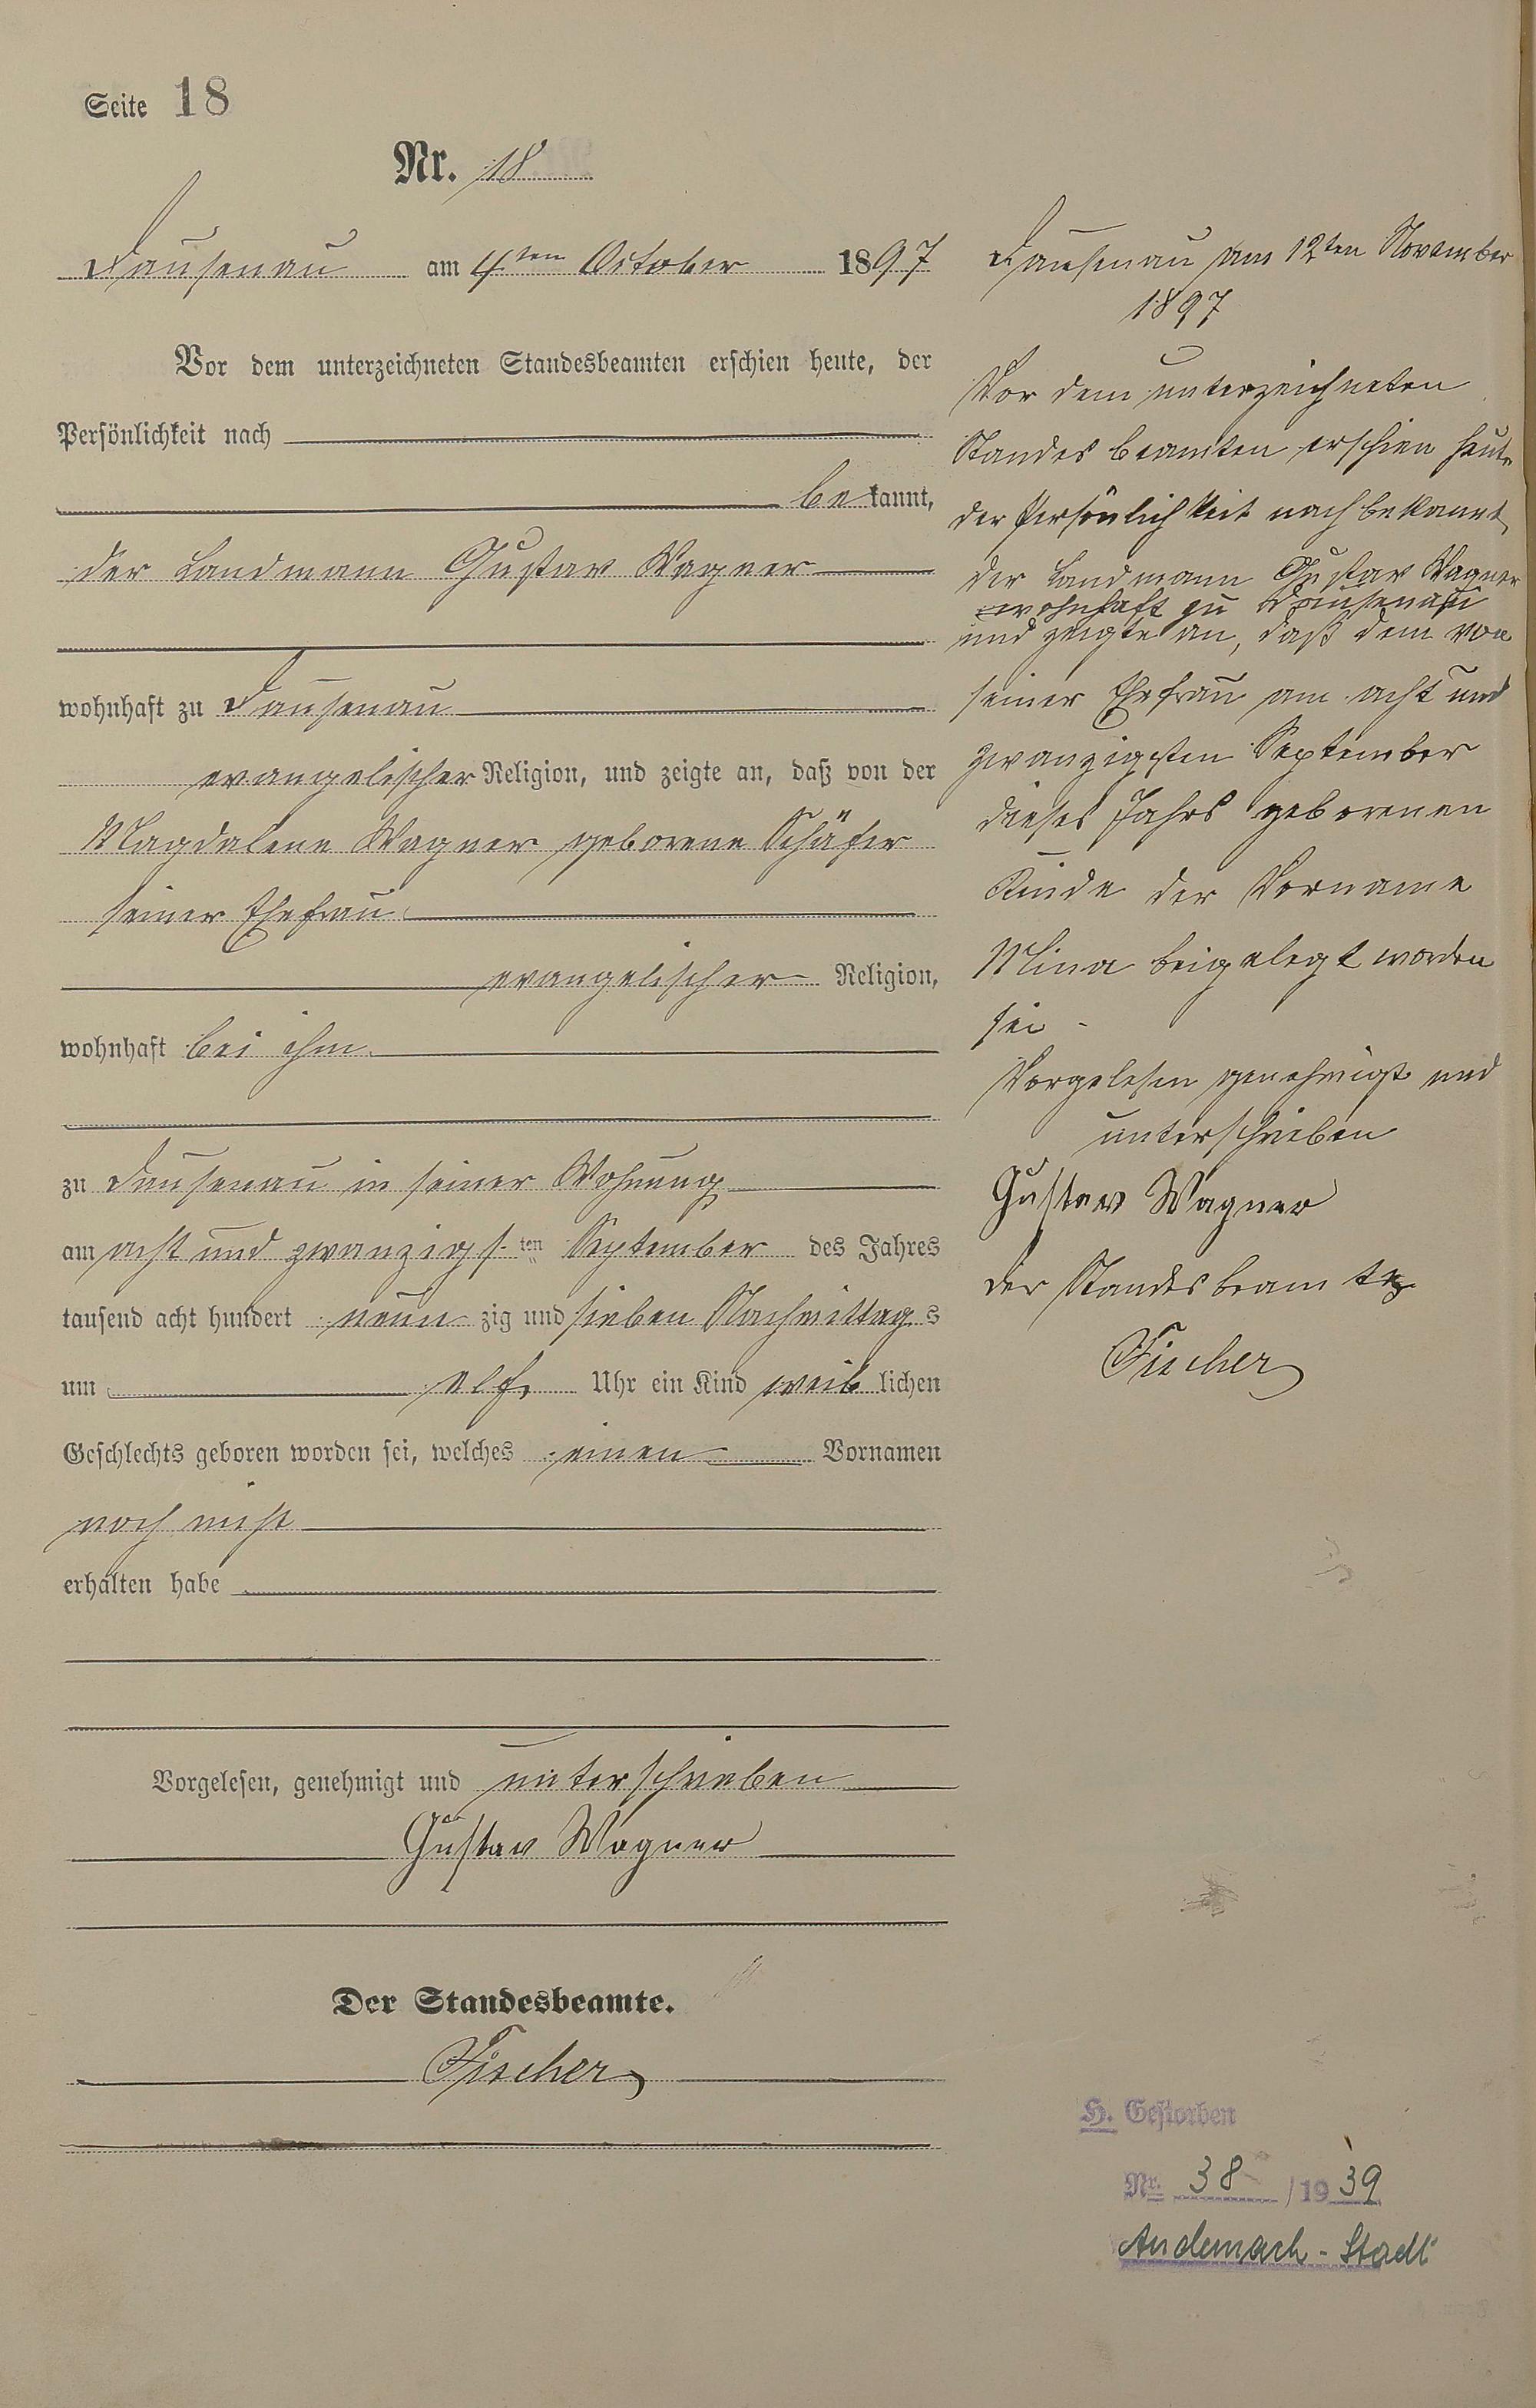 Seite 18
Nr. 18
Dausenau am 4ten October 1897
Vor dem unterzeichneten Standesbeamten erschien heute, der
Persönlichkeit nach
bekannt,
der Landmann Gustav Wagner
wohnhaft zu Dausenau
evangelischer Religion, und zeigte an, daß von der
Magdalene Wagner geborene Schäfer
seiner Ehefrau
evangelischer Religion,
wohnhaft bei ihm
zu Dausenau in seiner Wohnung
am acht und zwanzigsten September des Jahres
tausend acht hundert neunzig und sieben Nachmittags
um elf Uhr ein Kind weiblichen
Geschlechts geboren worden sei, welches einen Vornamen
noch nicht
erhalten habe
Vorgelesen, genehmigt und unterschrieben
Gustav Wagner
Der Standesbeamte.
Fischer
Dausenau am 12ten November
1897
Vor dem unterzeichneten
Standesbeamten erschien heute
der Persönlichkeit nach bekannt
der Landmann Gustav Wagner
wohnhaft zu Dausenau
und zeigte an, daß dem von
seiner Ehefrau am acht und
zwanzigsten September
dieses Jahrs geborenen
Kinde der Vorname
Mina beigelegt worden
sei -
Vorgelesen genehmigt und
unterschrieben
Gustav Wagner
Der Standesbeamte
Fischer
H. Gestorben
Nr. 38 /1939
Andernach - Stadt